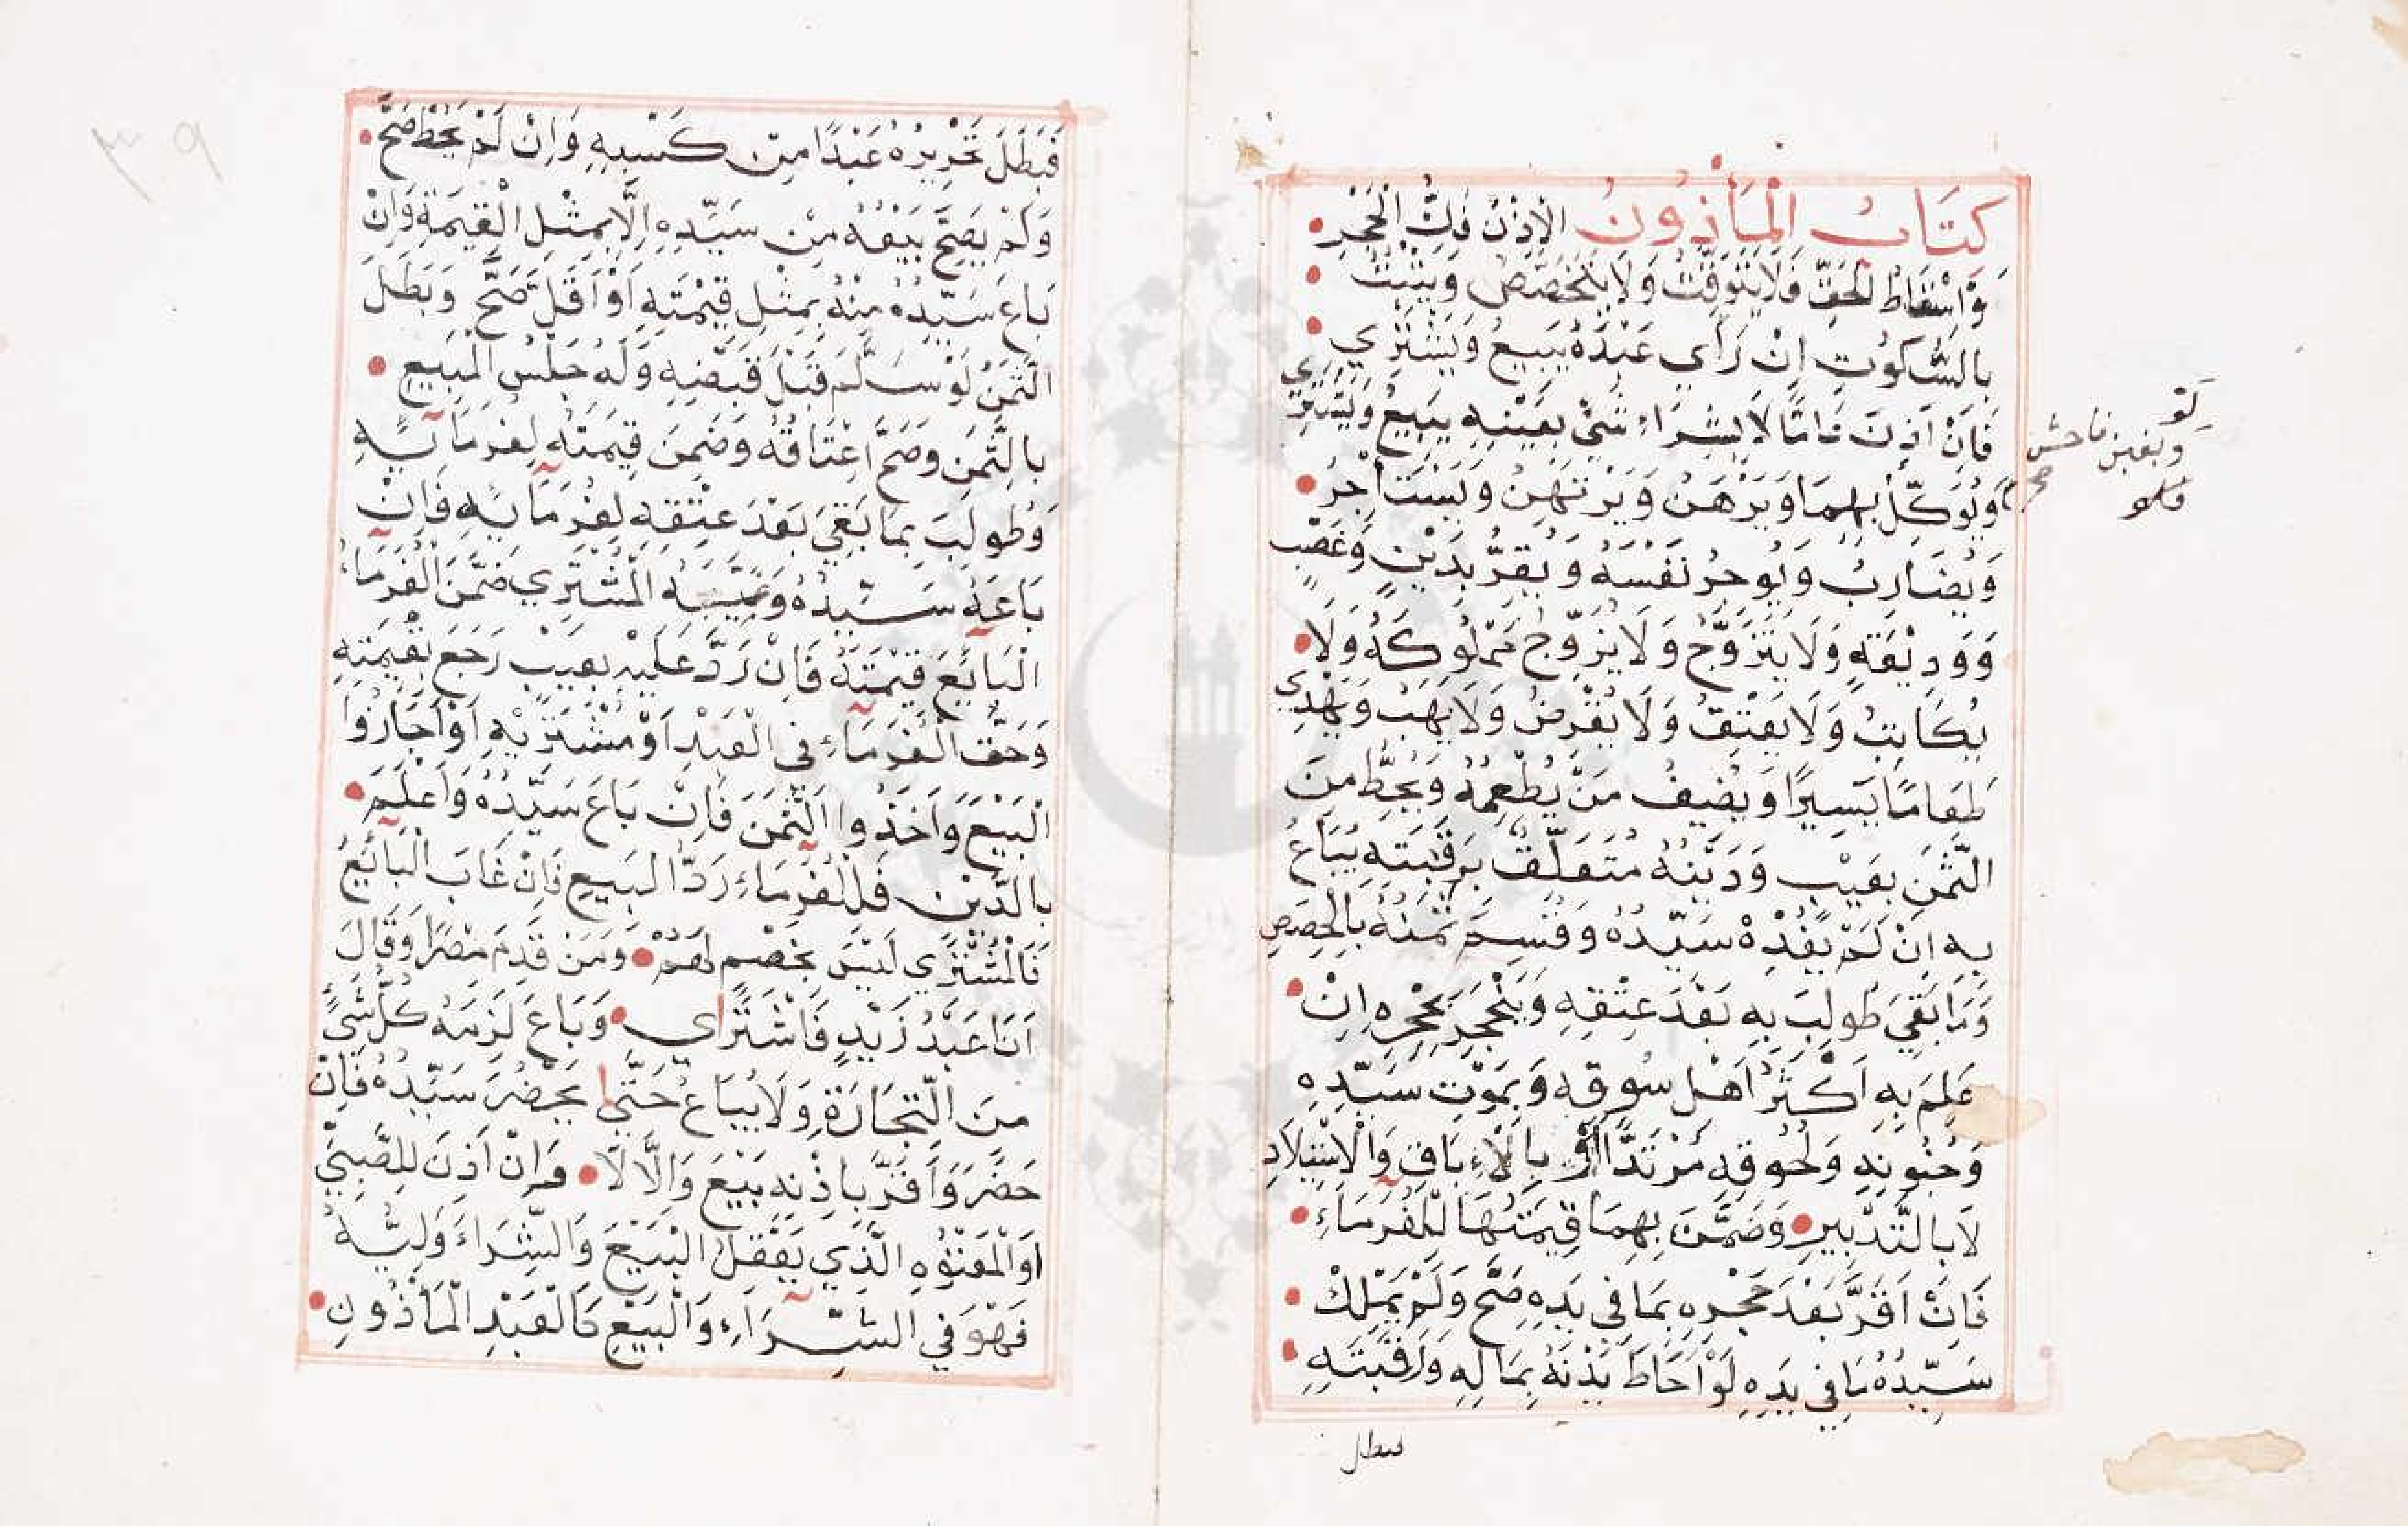 كتَابُ الْمَأْذُونُ الْاِذْنُ فَكُّ الْحَجْرِ
وَاسْقَاطُ الْحَقِّ فَلَا يَتَوَقَّتُ وَلَا يَتَخَصَّصُ وَيَثْبُتُ
بِالسُّكُوتِ اِنْ رَأَى عَبْدَهُ يَبِيعُ وَيَشْتَرِي
فَاِنْ اَذِنَ عَامًّا لَا بِشِرَاءِ شَيْءٍ بِعَيْنِهِ يَبِيعُ وَيَشْتَرِي
وَيُوَكِّلُ بِهِمَا وَيَرْهَنُ وَيَرْتَهِنُ وَيَسْتَأْجِرُ
وَيُضَارِبُ وَيُوجِرُ نَفْسَهُ وَيُقِرُّ بِدَيْنٍ وَغَصْبٍ
وَوَدِيْعَةٍ وَلَا يَتَزَوَّجُ وَلَا يُزَوِّجُ مَمْلُوكَهُ وَلَا
يُكَاتِبُ وَلَا يَعْتِقُ وَلَا يُقْرِضُ وَلَا يَهَبُ وَيُهْدِي
طَعَامًا يَسِيرًا وَيُضِيفُ مَنْ يُطْعِمُهُ وَيَحُطُّ مِنَ
الثَّمَنِ بِعَيْبٍ وَدَيْنُهُ مُتَعَلِّقٌ بِرَقَبَتِهِ يُبَاعُ
بِهِ اِنْ لَمْ يَفْدِهْ سَيِّدُهُ وَقُسِمَ ثَمَنُهُ بِالْحِصَصِ
وَمَا بَقِيَ طُولِبَ بِهِ بَعْدَ عِتْقِهِ وَيَنْحَجِرُ بِحَجْرِهِ اِنْ
عَلِمَ بِهِ اَكْثَرُ اَهْلِ سُوقِهِ وَبِمَوْتِ سَيِّدِهِ
وَجُنُونِهِ وَلُحُوقِهِ مُرْتَدًّا اَوْ بِالْاِبَاقِ وَالْاِسْتِيلَادِ
لَا بِالتَّدْبِيرِ وَضَمَّنَ بِهِمَا قِيمَتَهَا لِلْغُرَمَاءِ
فَاِنْ اَقَرَّ بَعْدَ حَجْرِهِ بِمَا فِي يَدِهِ صَحَّ وَلَمْ يَمْلِكْ
سَيِّدُهُ مَا فِي يَدِهِ لَوْ اَحَاطَ بَدْنَهُ بِمَالِهِ وَرَقَبَتِهِ
فبطل
وبغبن فاحش
صح
فَبَطَلَ تَحْرِيرُهُ عَبْدًا مِنْ كَسْبِهِ وَاِنْ لَمْ يُحِطْ صَحَّ
وَلَمْ يَصِحَّ بَيْعُهُ مِنْ سَيِّدِهِ اِلَّا بِمِثْلِ الْقِيمَةِ وَاِنْ
بَاعَ سَيِّدُهُ مِنْهُ بِمِثْلِ قِيْمَتِهِ اَوْ اَقَلَّ صَحَّ وَبَطَلَ
الثَّمَنُ لَوْ سَلَّمَ قَبْلَ قَبْضِهِ وَلَهُ حَبْسُ الْمَبِيعِ
بِالثَّمَنِ وَصَحَّ اِعْتَاقُهُ وَضَمِنَ قِيمَتَهُ لِغُرَمَائِهِ
وَطُولِبَ بِمَا بَقِيَ بَعْدَ عِتْقِهِ لِغُرَمَائِهِ فَاِنْ
بَاعَهُ سَيِّدُهُ وَغَيَّبَهُ الْمُشْتَرِي ضَمَّنَ الْغُرَمَاءُ
الْبَائِعَ قِيْمَتَهُ فَاِنْ رَدَّ عَلَيْهِ بِعَيْبٍ رَجَعَ بِقِيمَتِهِ
وَحَقُّ الْغُرَمَاءِ فِي الْعَبْدِ اَوْ مُشْتَرِيْهِ اَوْ اَجَازُوا
الْبَيْعَ وَاَخَذُوا الثَّمَنَ فَاِنْ بَاعَ سَيِّدُهُ وَاَعْلَمَ
بِالدَّيْنِ فَلِلْغُرَمَاءِ رَدُّ الْبَيعِ فَاِنْ غَابَ الْبَائِعُ
فَالْمُشْتَرِي لَيْسَ بِخَصْمٍ لَهُمْ وَمَنْ قَدِمَ مِصْرًا وَقَالَ
اَنَا عَبْدُ زَيْدٍ فَاشْتَرَاي وَبَاعَ لَزِمَهُ كُلُّ شَيْءٍ
مِنَ التِّجَارَةِ وَلَا يُبَاعُ حَتَّى يَحْضُرَ سَيِّدُهُ فَاِنْ
حَضَرَ وَاَقَرَّ بِاِذْنِهِ بَيْعَ وَاِلَّا لَا وَاِنْ اَذِنَ لِلصَّبِيِّ
اَوِ الْمَعْتُوْهِ الَّذِي يَعْقِلُ الْبَيْعَ وَالشِّرَاءَ وَلِيُّهُ
فَهْوَ فِي الشِّرَاءِ وَالْبَيْعِ كَالْعَبْدِ الْمَأْذُونِ
٣٩